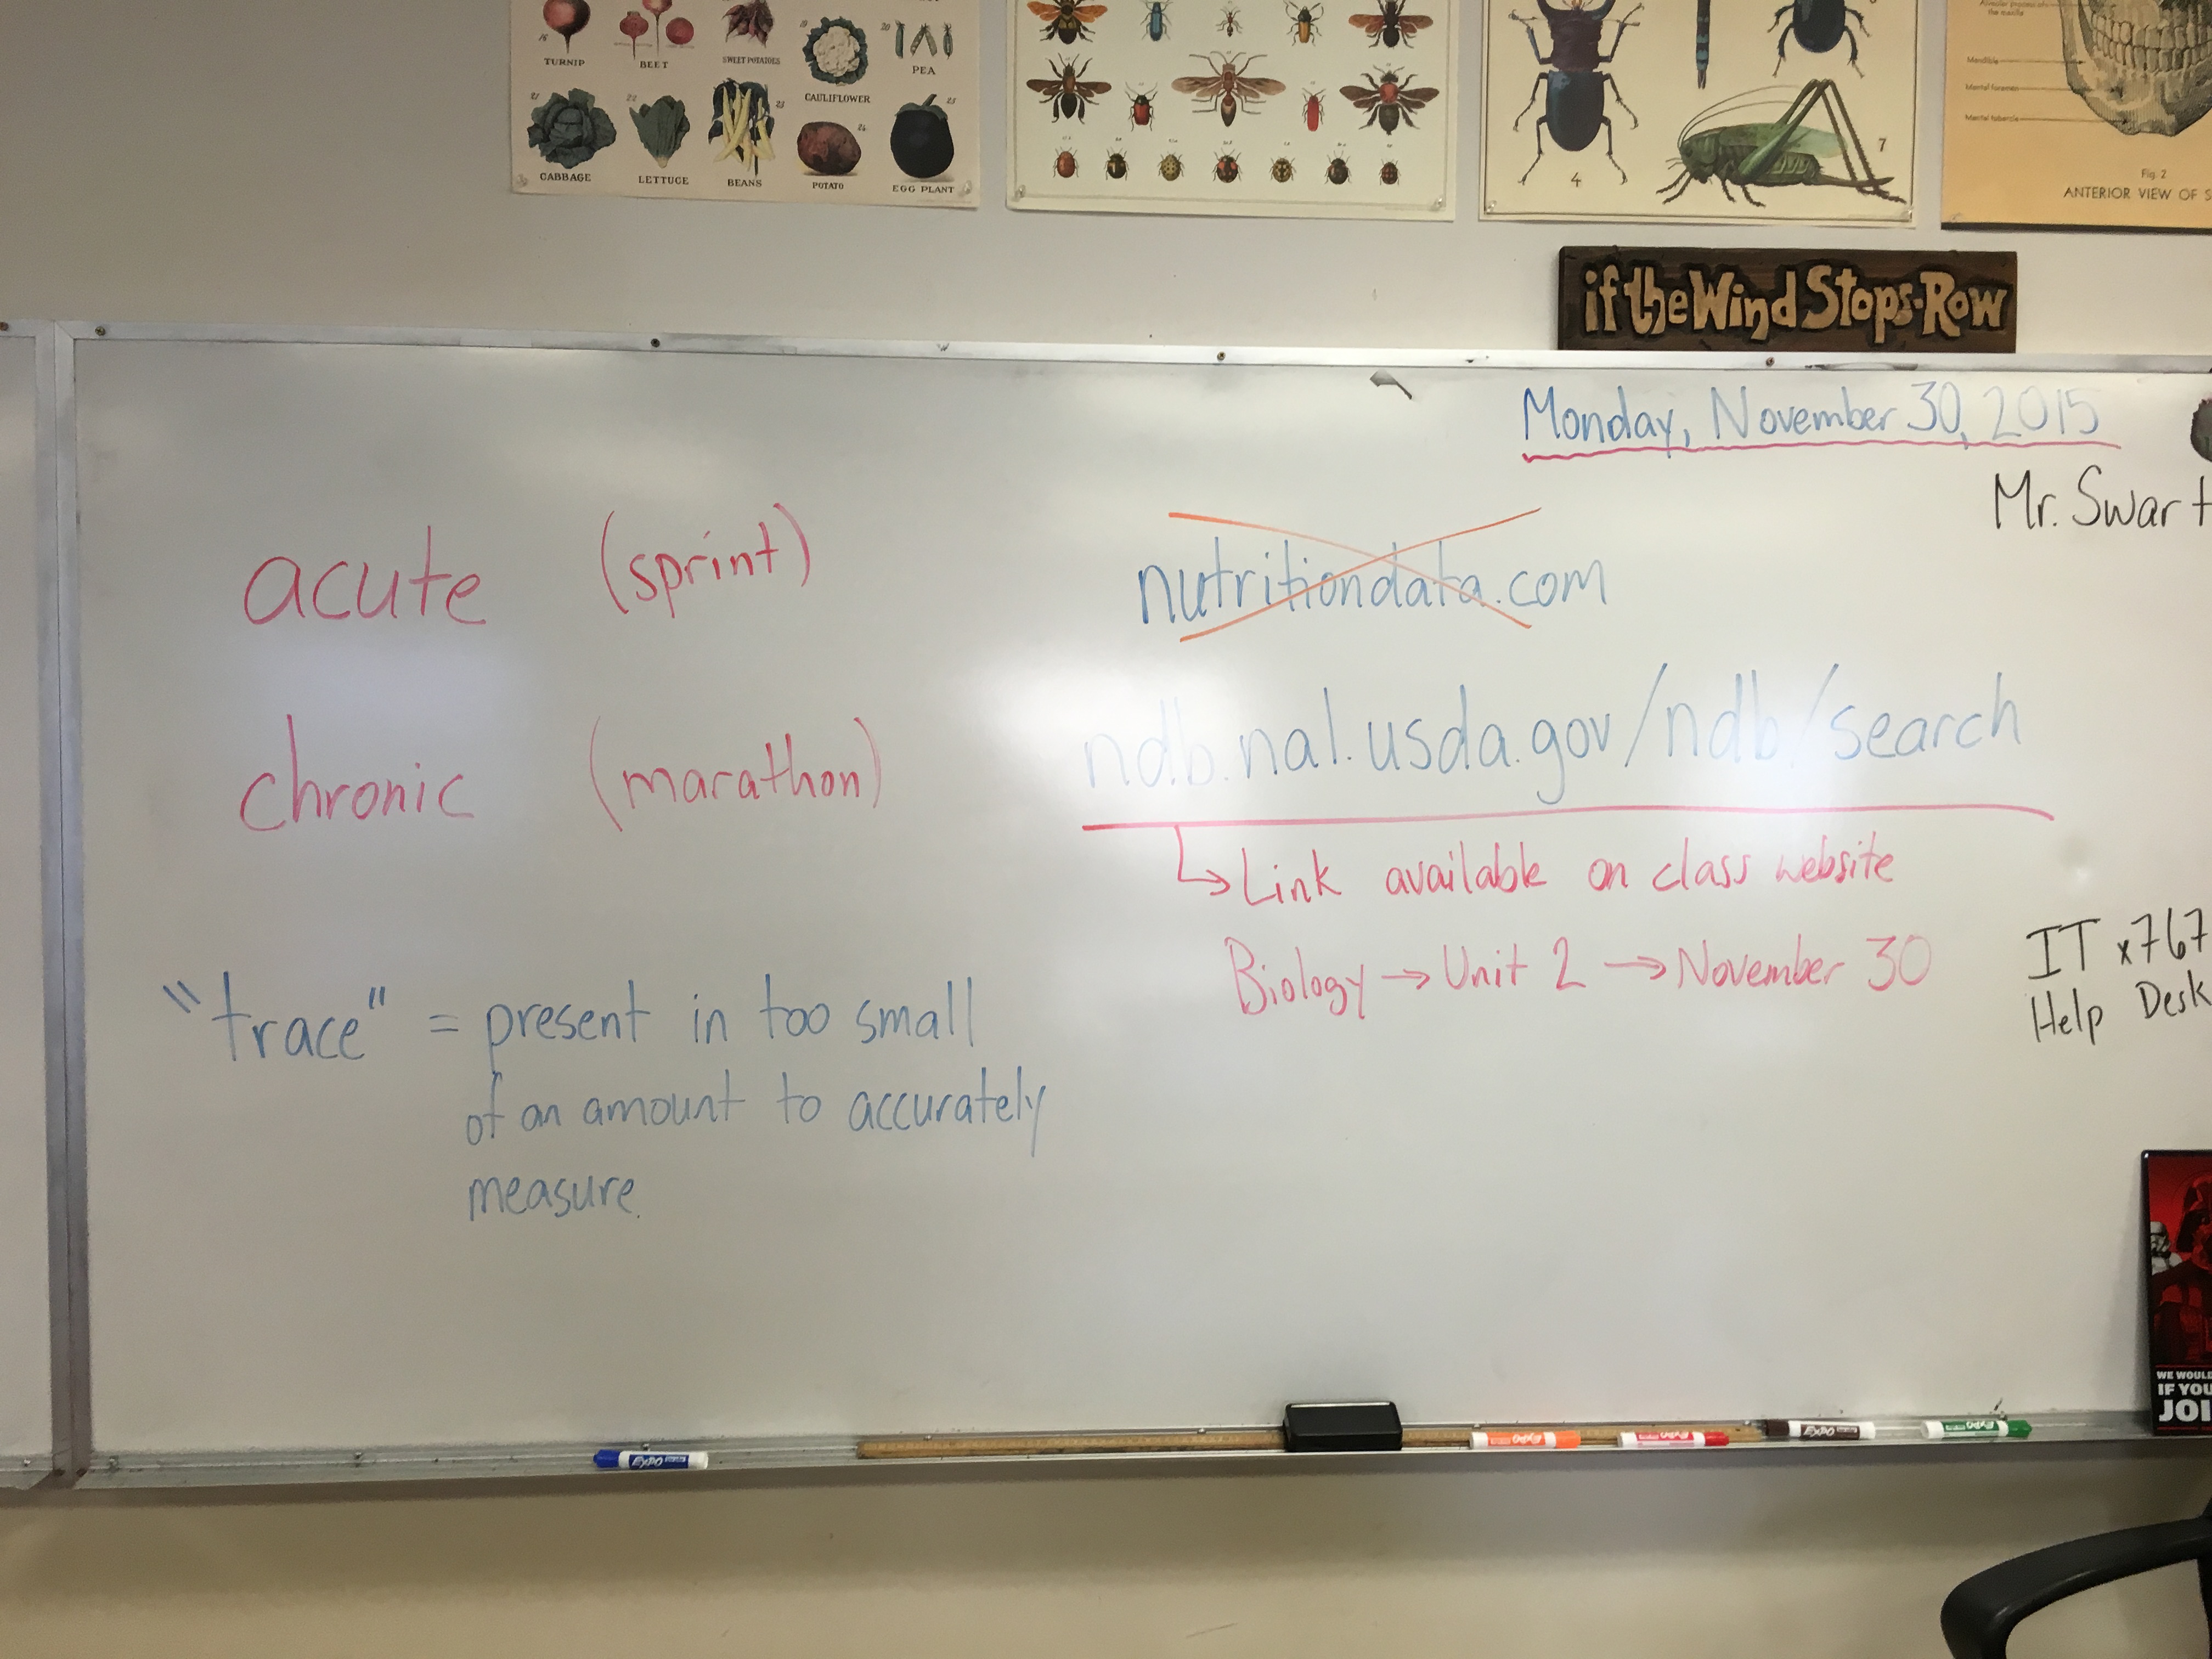 TURNIP
BEET
SWEET POTATOES
CAULIFLOWER
PEA
CABBAGE
LETTUCE
BEANS
POTATO
EGG PLANT
4
7
the maxilla
Mandible
Mental foramen
Mental tubercle
Fig. 2
ANTERIOR VIEW OF S
if the Wind Stops-Row
Monday, November 30, 2015
Mr. Swart
acute (sprint)
nutritiondata.com
chronic (marathon)
ndb.nal.usda.gov/ndb/search
Link available on class website
Biology → Unit 2 → November 30
IT x767
Help Desk
"trace" = present in too small
of an amount to accurately
measure.
WE WOULD
IF YOU
JOI
EXPO
EXPO
EXPO
EXPO
EXPO